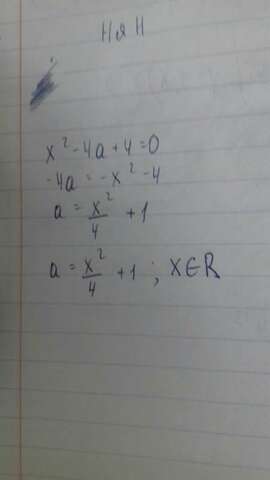 НяН
x² - 4a + 4 = 0
-4a = -x² - 4
a = x²/4 + 1
a = x²/4 + 1 ; x∈R